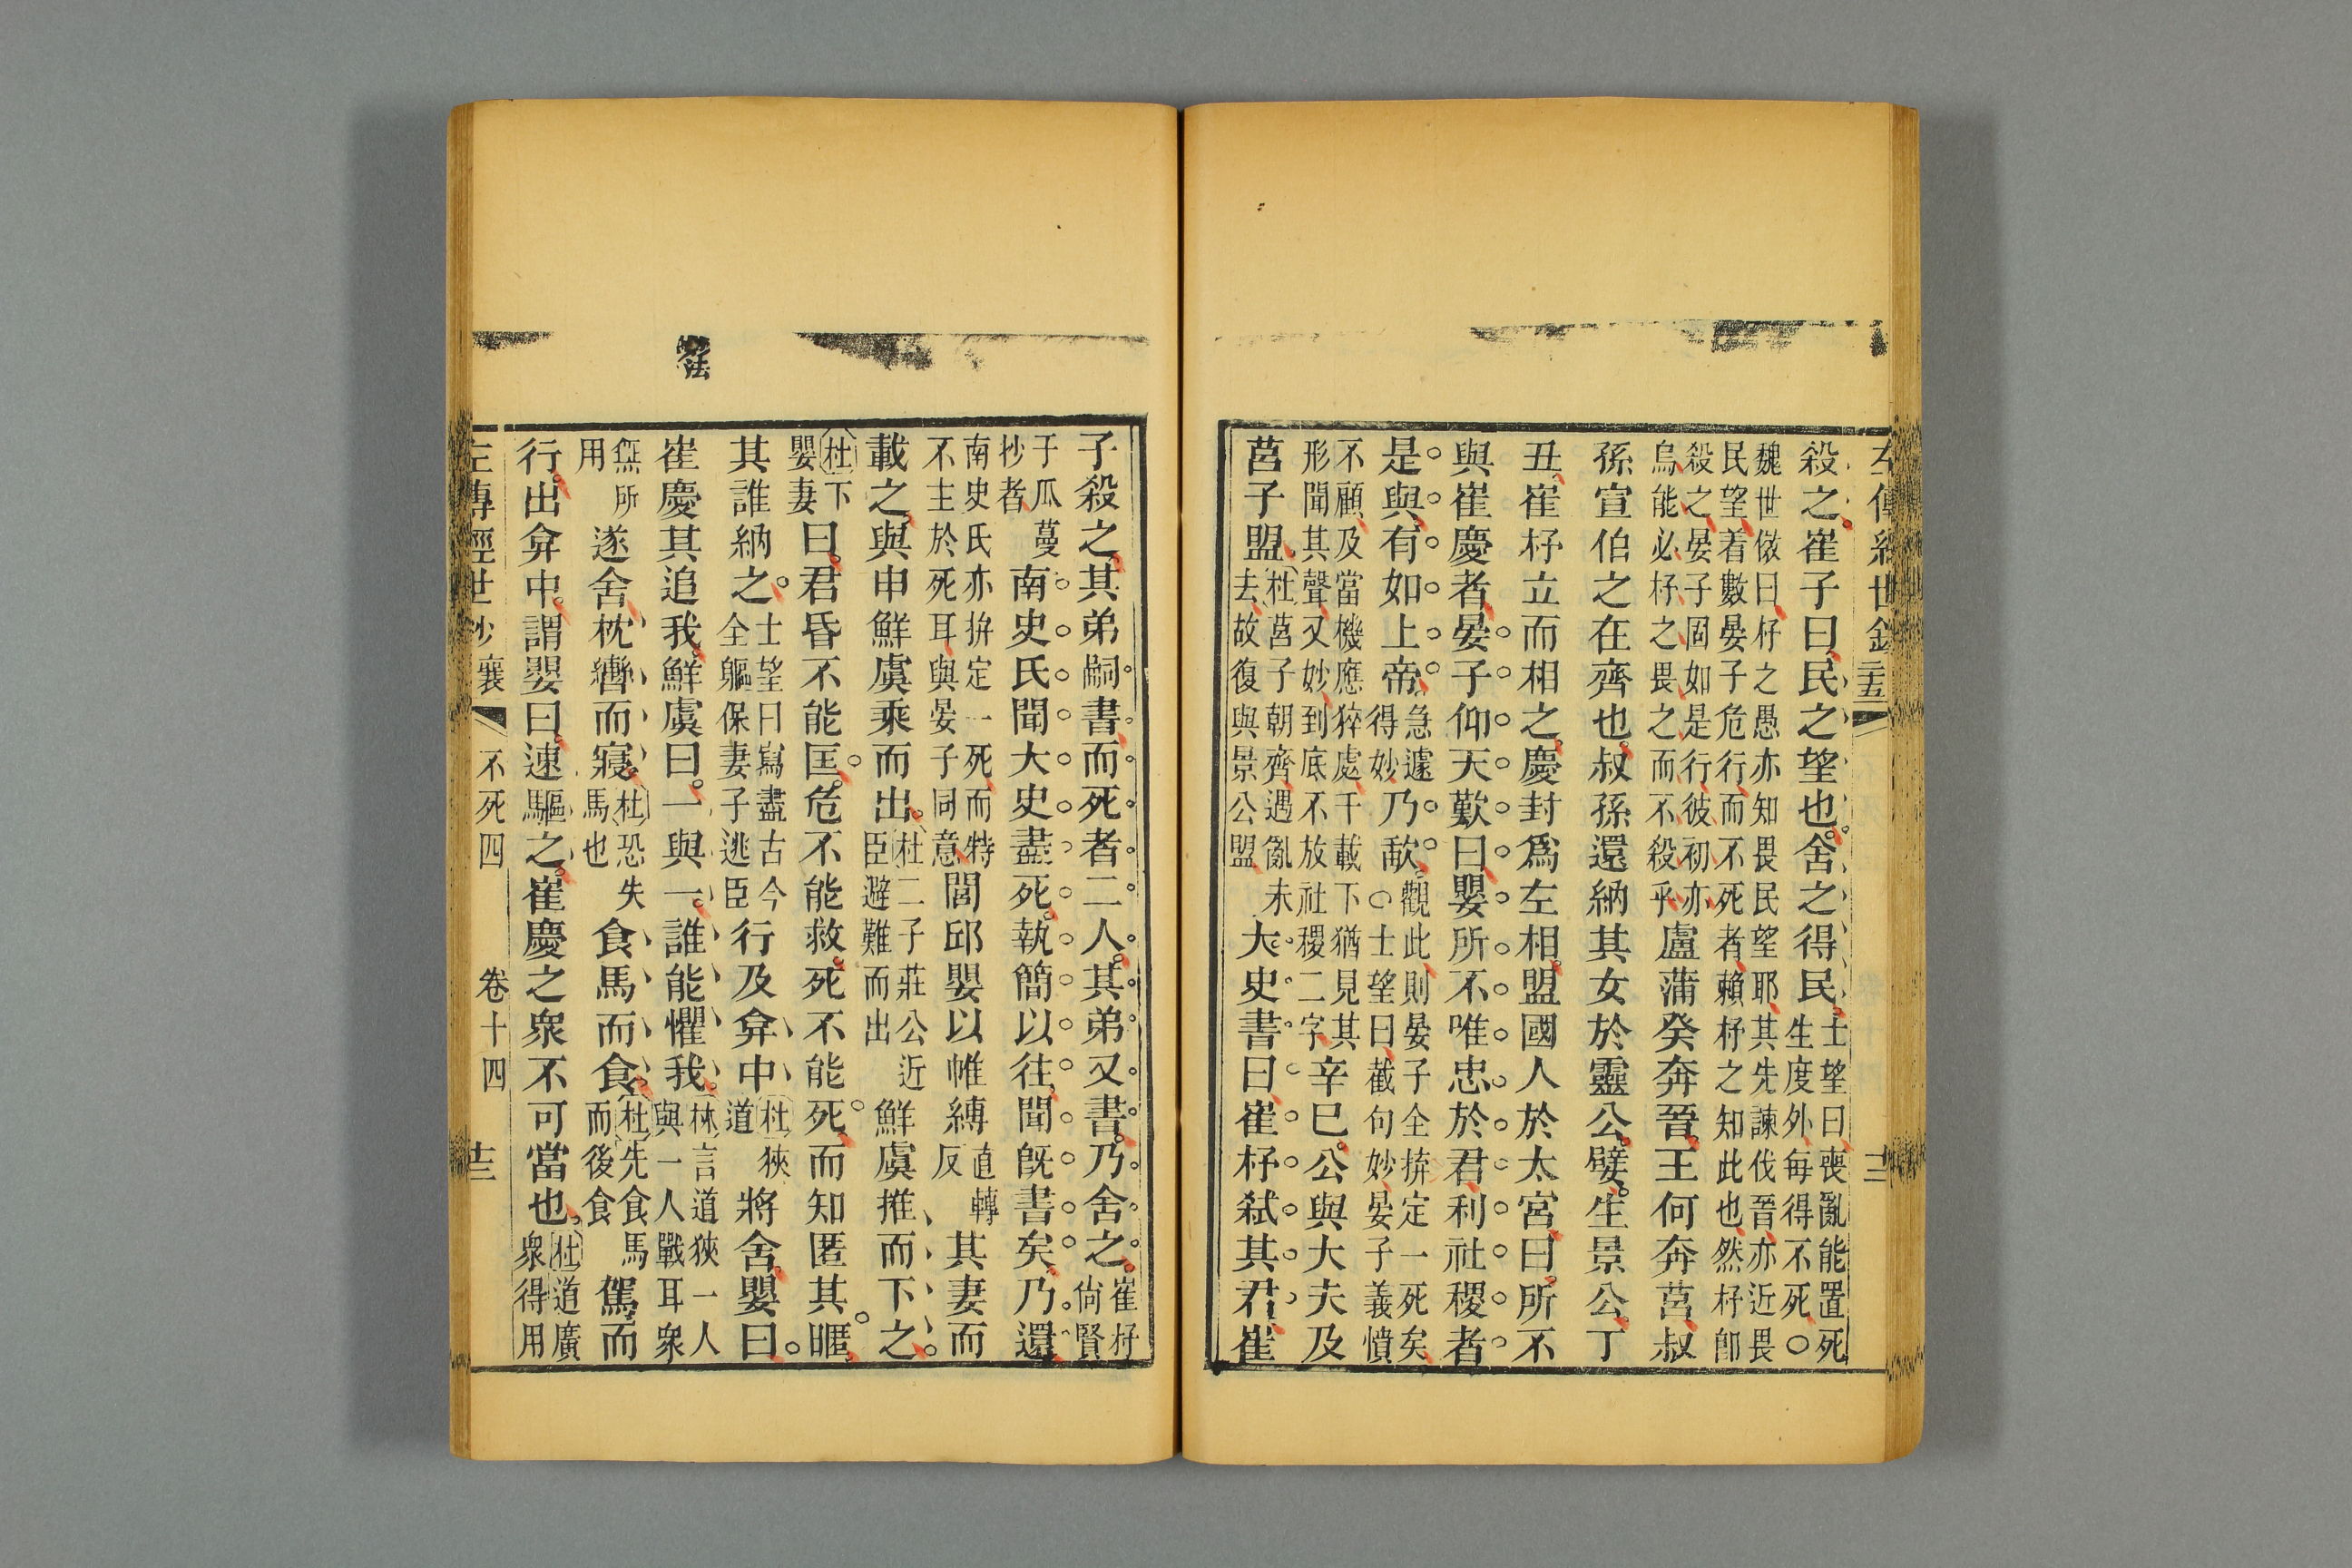 左傳經世鈔 二十五 十二
殺之崔子曰民之望也舍之得民士望曰喪亂能置死
生度外每得不死○
魏世傚曰杼之愚亦知畏民望耶其先諫伐晉亦近畏
民望着數晏子危行而不死者賴杼之知此也然杼卽
殺之晏子固如是行彼初亦
烏能必杼之畏之而不殺乎盧蒲癸奔晉王何奔莒叔
孫宣伯之在齊也叔孫還納其女於靈公嬖生景公丁
丑崔杼立而相之慶封爲左相盟國人於太宮曰所不
與崔慶者晏子仰天歎曰嬰所不唯忠於君利社稷者
是與有如上帝急遽
得妙乃歃觀此則晏子全拚定一死矣
○士望曰截句妙晏子義憤
不顧及當機應猝處千載下猶見其
形聞其聲又妙到底不放社稷二字辛巳公與大夫及
莒子盟杜莒子朝齊遇亂未
去故復與景公盟大史書曰崔杼弑其君崔
子殺之其弟嗣書而死者二人其弟又書乃舍之崔杼
尙賢
于瓜蔓
抄者南史氏聞大史盡死執簡以往聞旣書矣乃還
南史氏亦拚定一死而特
不主於死耳與晏子同意閭邱嬰以帷縛直轉
反其妻而
載之與申鮮虞乘而出杜二子莊公近
臣避難而出鮮虞推而下之
杜下
嬰妻曰君昏不能匡危不能救死不能死而知匿其暱
其誰納之士望曰寫盡古今
全軀保妻子逃臣行及弇中杜狹
道將舍嬰曰
崔慶其追我鮮虞曰一與一誰能懼我林言道狹一人
與一人戰耳衆
無所
用遂舍枕轡而寢杜恐失
馬也食馬而食杜先食馬
而後食駕而
行出弇中謂嬰曰速驅之崔慶之衆不可當也杜道廣
衆得用
左傳經世鈔 襄 不死四 卷十四 十三